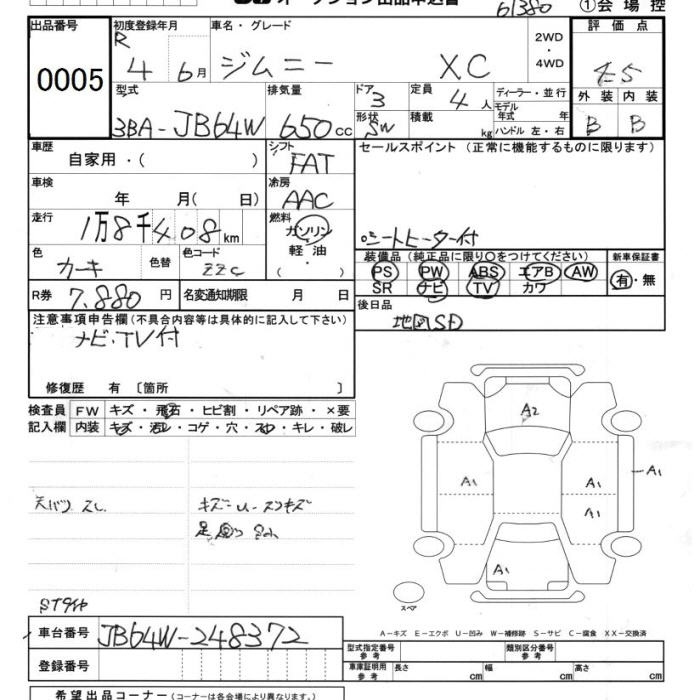 61380 ①会場控
出品番号 初度登録年月 車名・グレード 2WD・4WD 評価点
0005 R 4 6月 ジムニー XC 4.5
型式 排気量 ドア 定員 ディーラー・並行 外装 内装
3BA-JB64W 650cc 3 4人 モデル年式 年 B B
形状 SW 積載 kg ハンドル 左・右
車歴 シフト セールスポイント(正常に機能するものに限ります)
自家用・( ) FAT
車検 冷房
年 月( 日) AAC
走行 燃料
1万8千408km ガソリン シートヒーター付
軽油
・( )
色 色替 色コード 装備品(純正品に限り〇をつけてください) 新車保証書
カーキ ZZC PS PW ABS エアB AW 有・無
SR ナビ TV カワ
R券 7,880円 名変通知期限 月 日 後日品
地図SD
注意事項申告欄(不具合内容等は具体的に記入して下さい)
ナビ・TV付
修復歴 有〔箇所 〕
検査員 FW キズ・飛石・ヒビ割・リペア跡・×要
記入欄 内装 キズ・汚レ・コゲ・穴・スレ・キレ・破レ
A2
A1 A1 A1
A1
A1
キズ
スペア
A-キズ E-エクボ U-凹み W-補修跡 S-サビ C-腐食 XX-交換済
車台番号 JB64W-248372
登録番号
型式指定番号 参考 類別区分番号 参考
車庫証明用 参考 長さ cm 幅 cm 高さ cm
希望出品コーナー(コーナーは各会場により異なります)